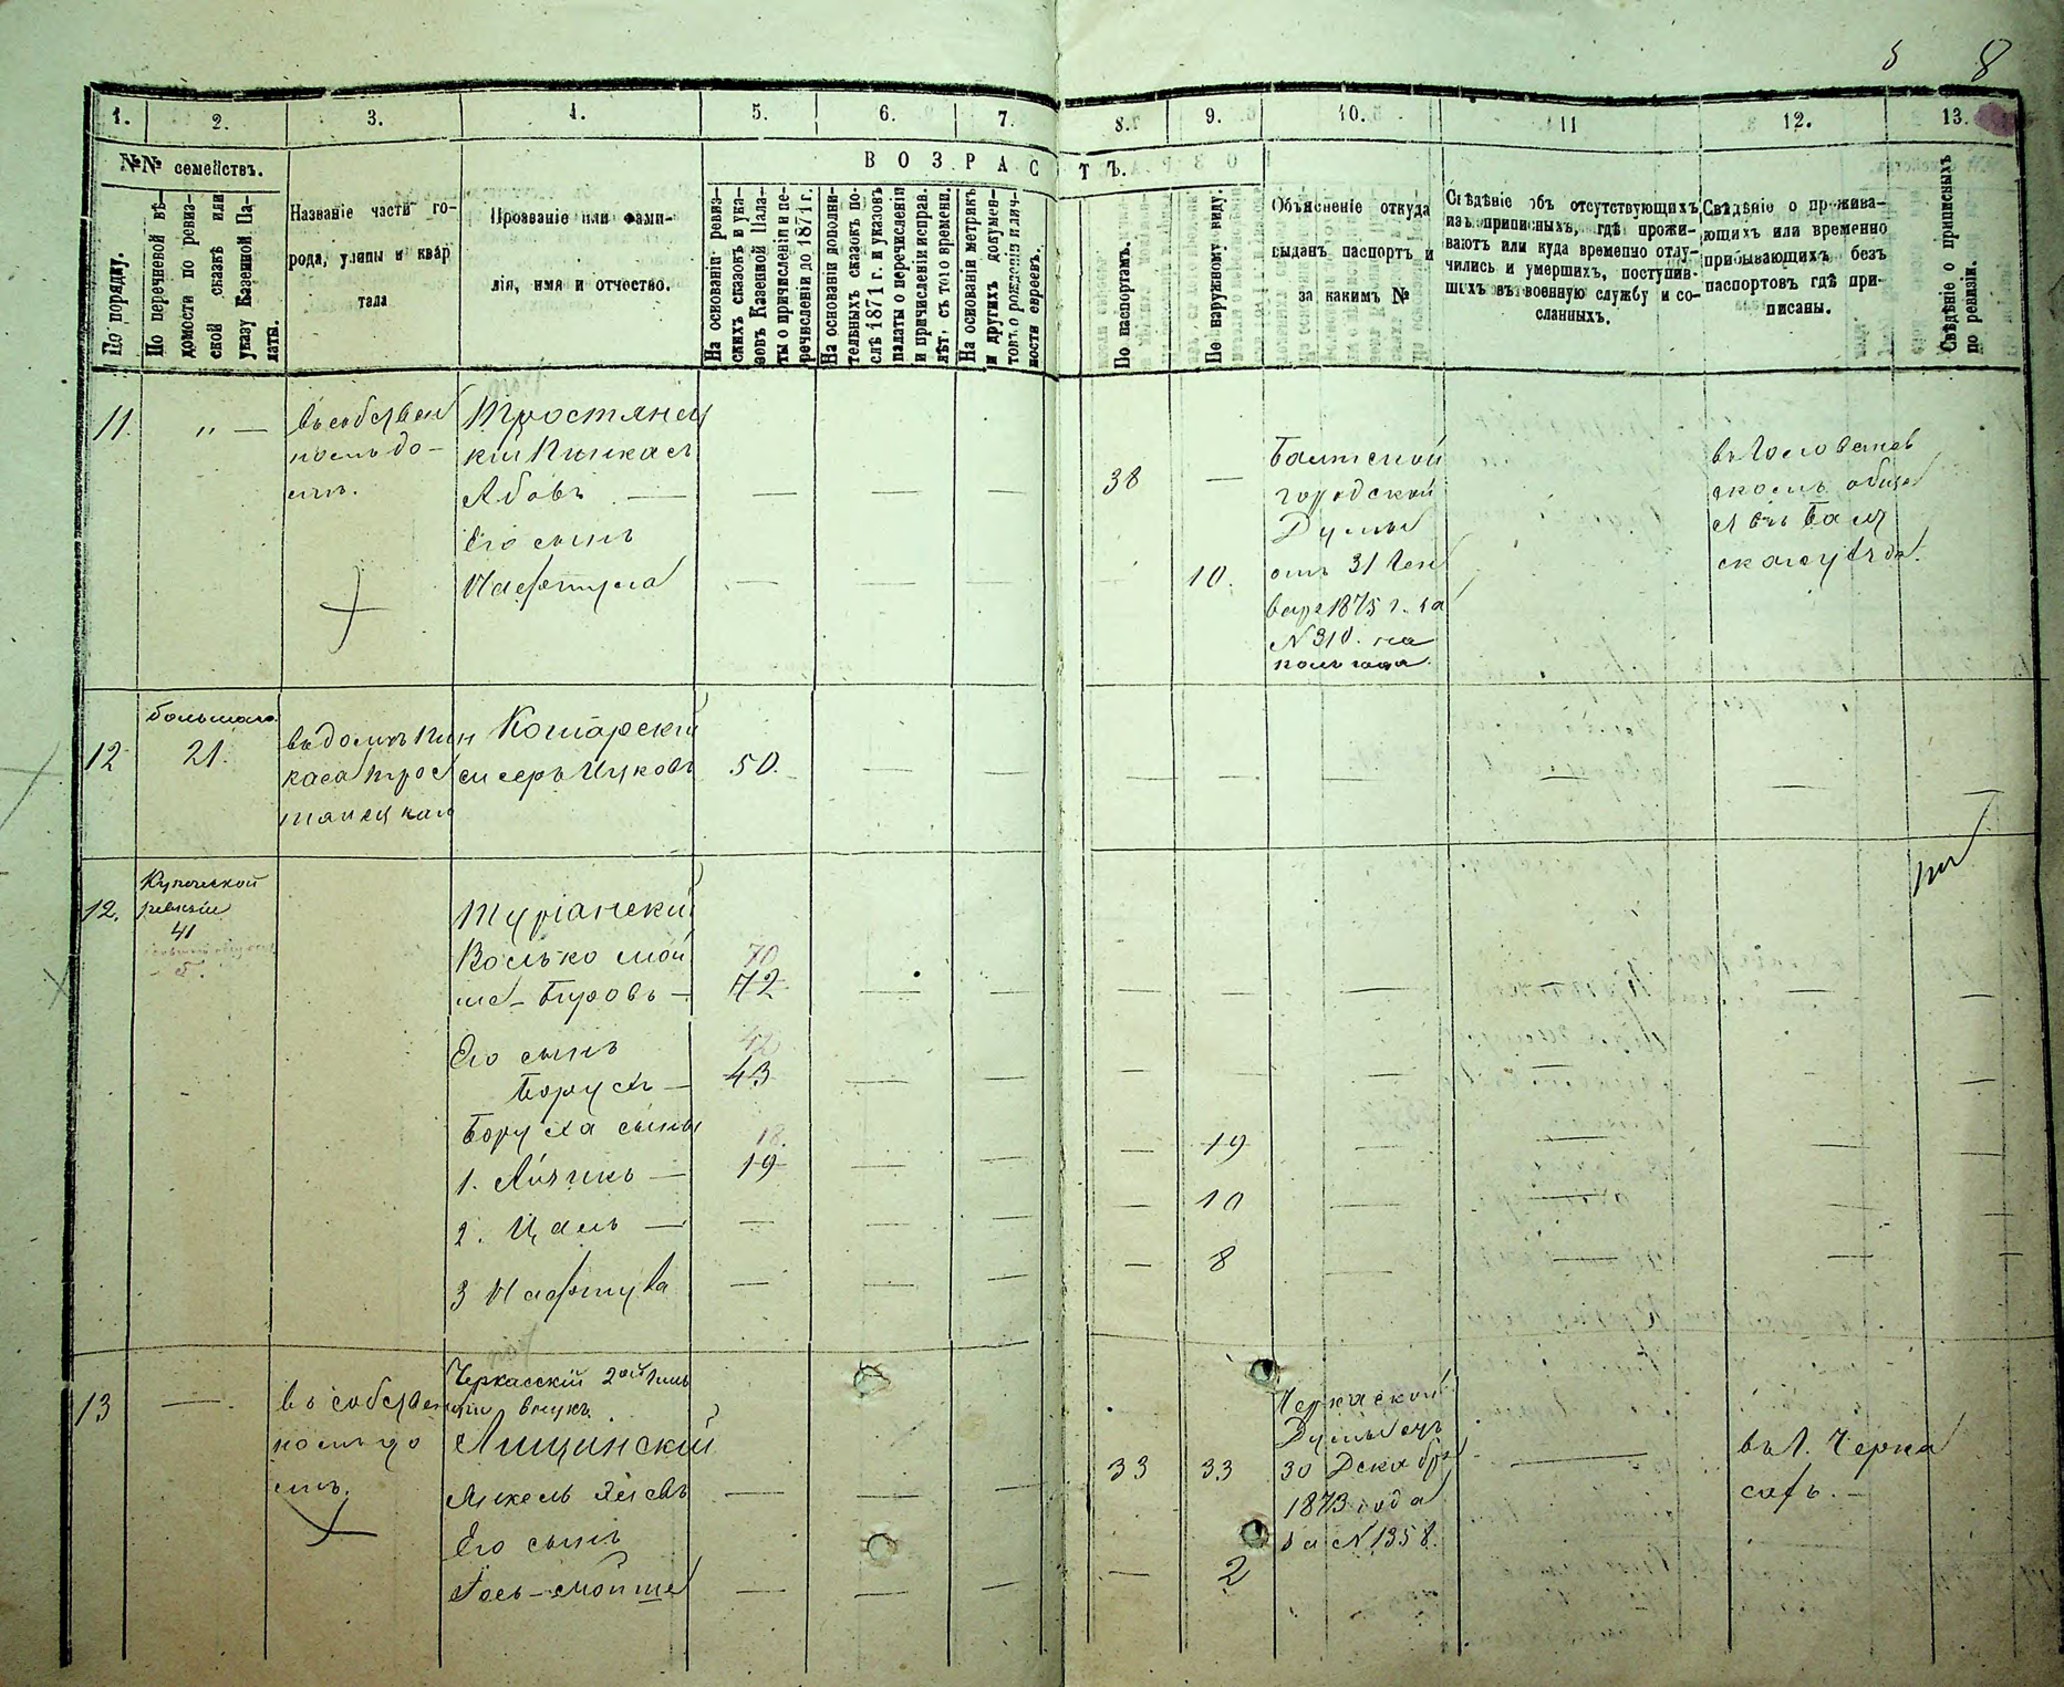 5 8
1. 2. 3. 4. 5. 6. 7. 8. 9. 10. 11 12. 13.
№№ семействъ.
По порядку.
По перечневой вѣ-
домости по ревиз-
ской сказкѣ или
указу Казенной Па-
латы.
Названіе части го-
рода, улицы и квар
тала
Прозваніе или фами-
лія, имя и отчество.
ВОЗРАСТЪ.
На основаніи ревиз-
скихъ сказокъ и ука-
зовъ Казенной Пала-
ты о причисленіи и пе-
речисленіи до 1871 г.
На основаніи дополни-
тельныхъ сказокъ по-
слѣ 1871 г. и указовъ
палаты о перечисленіи
и причисленіи исправ.
лѣт. съ того времени.
На основаніи метрикъ
и другихъ докумен-
товъ о рожденіи и лич-
ности евреевъ.
По паспортамъ.
По наружному виду.
Объясненіе откуда
выданъ паспортъ и
за какимъ №
Свѣдѣніе объ отсутствующихъ
изъ приписныхъ, гдѣ прожи-
ваютъ или куда временно отлу-
чились и умершихъ, поступив-
шихъ въ военную службу и со-
сланныхъ.
Свѣдѣніе о прожива-
ющихъ или временно
прибывающихъ безъ
паспортовъ гдѣ при-
писаны.
Свѣдѣніе о приписныхъ
по ревизіи.
11. " —
въ собствен
номъ до-
мѣ.
Тростянец
кій Пинкас
Абовъ — — — — 38 —
Его сынъ
Нафтула — — — — 10.
Балтской
городской
Думы
отъ 31 Ген
варя 1875 г. за
№ 310. на
полъ года.
 скомъ обще
ствѣ Балт
ском уѣзда.
12
21.
въ домѣ Пин
каса Трос
тянецкаго
Котарскій
50. — — — — — — — —
12.
Купеческой
ревизіи
41
5.
Туріанскій
Волько Мой
ше-Беровъ —
70
72 — — — — — — — —
Его сынъ
Борухъ —
42
43 — — — — — — — —
Боруха сыны
1. Айзикъ —
18.
19 — — — 19 — — — —
2. Цаль — — — — — 10 — — — —
3 Нафтула — — — — 8 — — — —
13 — .
въ собствен
номъ до
мѣ.
Черкасскій 2ой
внукъ.
Лищинскій
Янкель — — — 33 33
Его сынъ
Іось-Мойше — — — — 2
Черкаской
Думы отъ
30 Декабря
1873 года
за № 1358.
—
въ г. Черка
сахъ. —